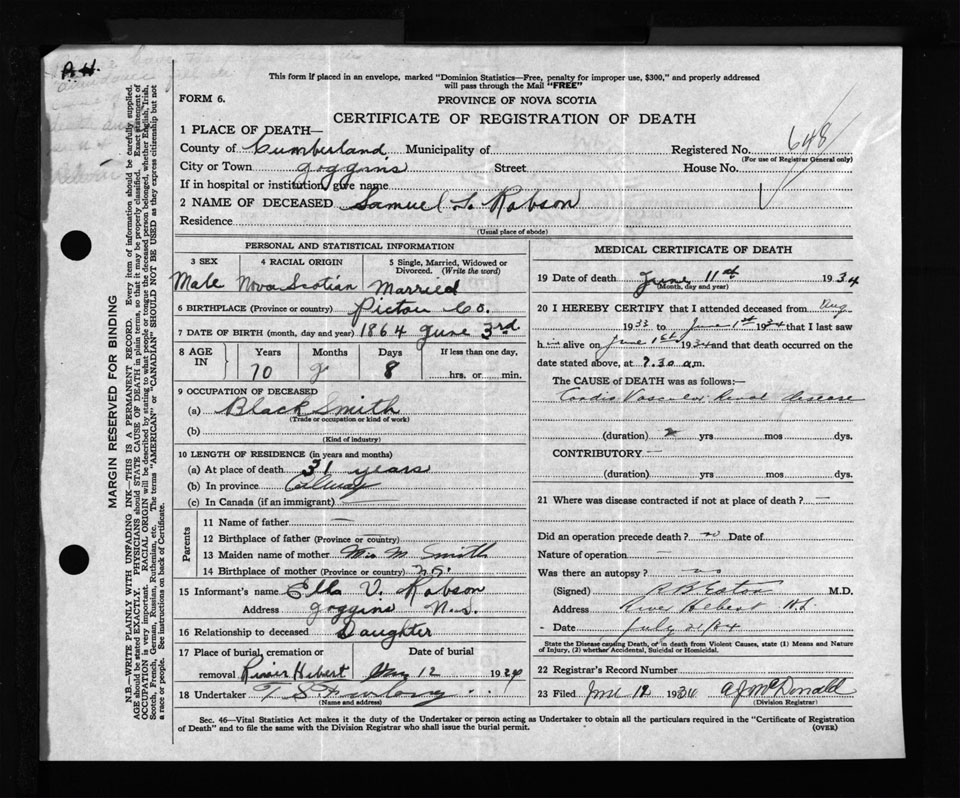 A.H.
This form if placed in an envelope, marked "Dominion Statistics—Free, penalty for improper use, $300," and properly addressed
will pass through the Mail "FREE"
FORM 6.
PROVINCE OF NOVA SCOTIA
CERTIFICATE OF REGISTRATION OF DEATH
1 PLACE OF DEATH—
County of Cumberland Municipality of Registered No. 648
(For use of Registrar General only)
City or Town Joggins Street House No.
If in hospital or institution, give name
2 NAME OF DECEASED Samuel L. Robson
Residence
(Usual place of abode)
PERSONAL AND STATISTICAL INFORMATION
3 SEX 4 RACIAL ORIGIN 5 Single, Married, Widowed or
Divorced. (Write the word)
Male Nova Scotian Married
6 BIRTHPLACE (Province or country) Pictou Co.
7 DATE OF BIRTH (month, day and year) 1864 June 3rd
8 AGE IN Years Months Days If less than one day,
70 8 hrs. or min.
9 OCCUPATION OF DECEASED
(a) Black Smith
(Trade or occupation or kind of work)
(b)
(Kind of industry)
10 LENGTH OF RESIDENCE (in years and months)
(a) At place of death 31 years
(b) In province
(c) In Canada (if an immigrant)
Parents
11 Name of father —
12 Birthplace of father (Province or country)
13 Maiden name of mother Miss M. Smith
14 Birthplace of mother (Province or country) N.S.
15 Informant's name Ella V. Robson
Address Joggins N.S.
16 Relationship to deceased Daughter
17 Place of burial, cremation or Date of burial
removal River Hebert 12 1934
18 Undertaker
(Name and address)
MEDICAL CERTIFICATE OF DEATH
19 Date of death June 11th 1934
(Month, day and year)
20 I HEREBY CERTIFY that I attended deceased from Aug
1933 to June 1st 1934 that I last saw
h im alive on June 1st 1934 and that death occurred on the
date stated above, at 7.30 a.m.
The CAUSE of DEATH was as follows:
Cardio Vascular Renal disease
(duration) 2 yrs mos dys.
CONTRIBUTORY —
(duration) yrs mos dys.
21 Where was disease contracted if not at place of death? —
Did an operation precede death? no Date of
Nature of operation —
Was there an autopsy? no
(Signed) R B Eaton M.D.
Address River Hebert N.S.
Date July 21/34
State the Disease causing Death, or in death from Violent Causes, state (1) Means and Nature
of Injury, (2) whether Accidental, Suicidal or Homicidal.
22 Registrar's Record Number
23 Filed June 12 1934 A J McDonald
(Division Registrar)
Sec. 46—Vital Statistics Act makes it the duty of the Undertaker or person acting as Undertaker to obtain all the particulars required in the "Certificate of Registration
of Death" and to file the same with the Division Registrar who shall issue the burial permit.
(OVER)
MARGIN RESERVED FOR BINDING
N.B.—WRITE PLAINLY WITH UNFADING INK—THIS IS A PERMANENT RECORD. Every item of information should be carefully supplied.
AGE should be stated EXACTLY. PHYSICIANS should STATE CAUSE OF DEATH in plain terms, so that it may be properly classified. Exact statement of
OCCUPATION is very important. RACIAL ORIGIN will be described by stating to what people or tongue the deceased person belonged, whether English, Irish,
Scotch, French, German, Russian, Ruthenian, etc. The terms "AMERICAN" or "CANADIAN" SHOULD NOT BE USED as they express citizenship but not
a race or people. See instructions on back of Certificate.